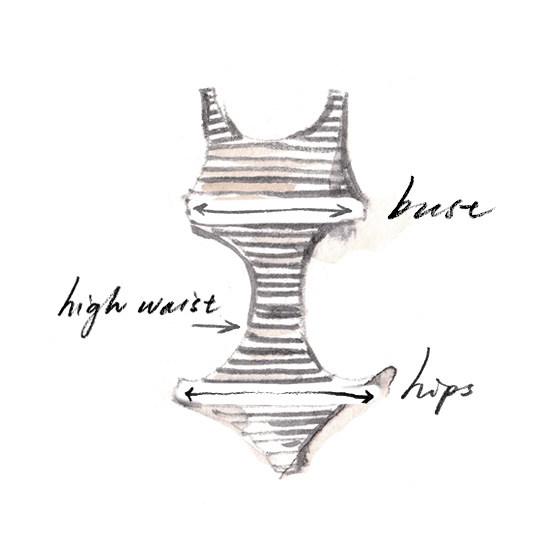 bust
high waist
hips